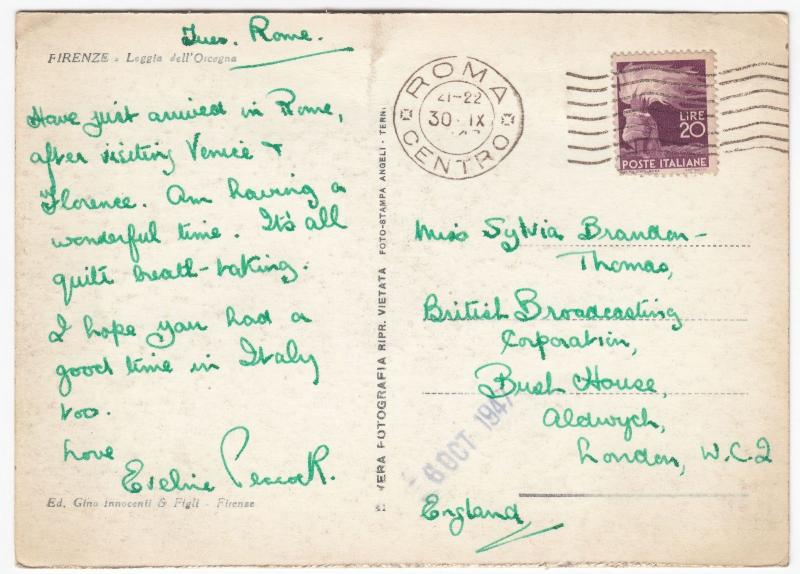 Tues. Rome.
FIRENZE - Loggia dell'Orcagna
Have just arrived in Rome,
after visiting Venice &
Florence. Am having a
wonderful time. It's all
quite breath-taking.
I hope you had a
good time in Italy
too.
Love
Eveline Peacock.
Ed. Gino Innocenti & Figli - Firenze
VERA FOTOGRAFIA RIPR. VIETATA FOTO-STAMPA ANGELI - TERNI
ROMA
21-22
30 · IX
CENTRO
LIRE
20
POSTE ITALIANE
Miss Sylvia Brandon-
Thomas,
British Broadcasting
Corporation,
Bush House,
Aldwych,
London, W.C.2
England
6 OCT 1947